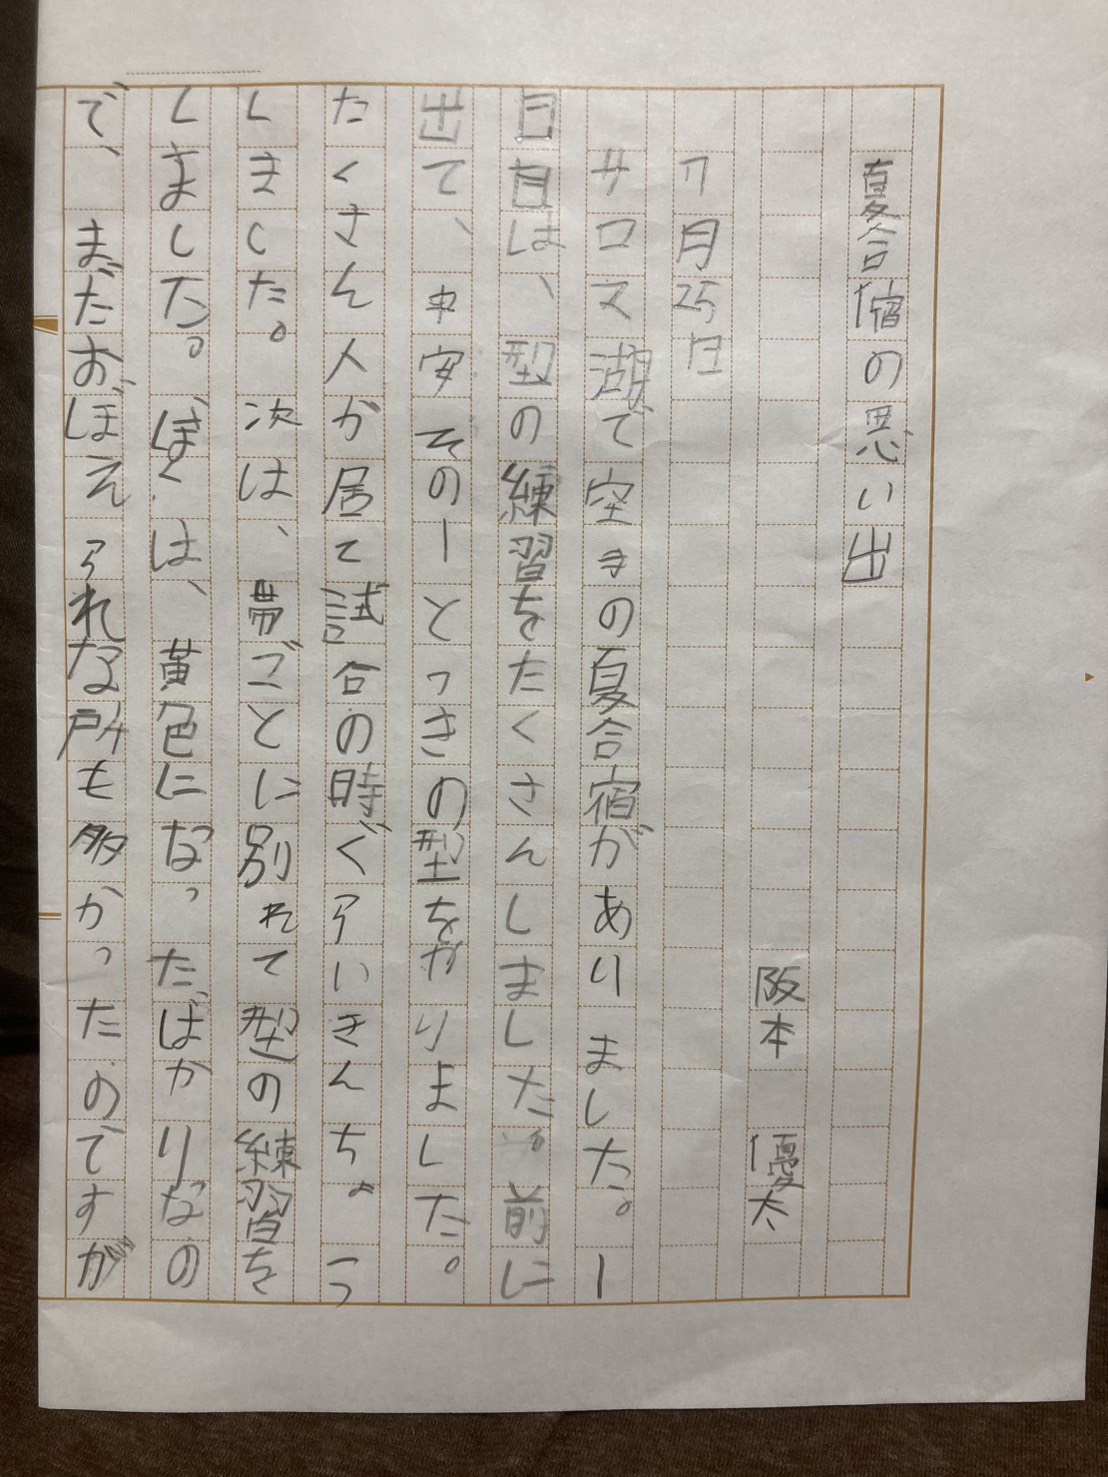 夏合宿の思い出
阪本 優太
7月25日
サロマ湖で空手の夏合宿がありました。一
日目は、型の練習をたくさんしました。前に
出て、平安その一とっきの型をやりました。
たくさん人が居て試合の時ぐらいきんちょうつ
しました。次は、帯ごとに別れて型の練習を
しました。ぼくは、黄色になったばかりなの
で、まだおぼえられな所も多かったのですが